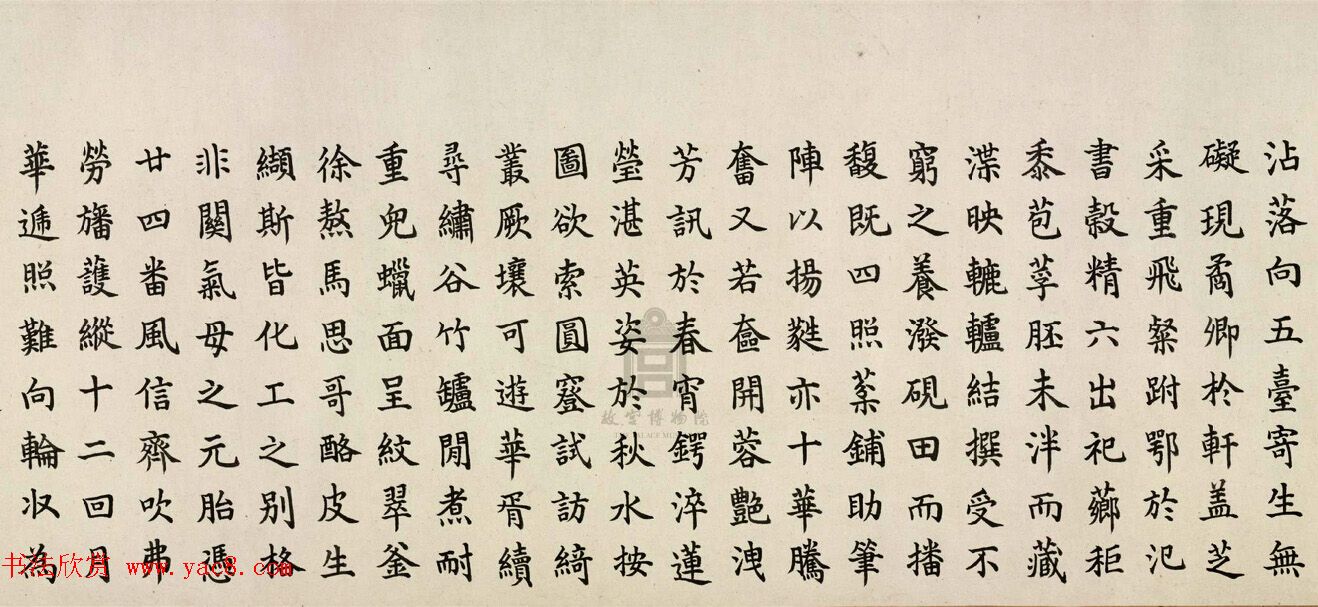 沾落向五臺寄生無
礙現矞卿於軒盖芝
采重飛粲跗鄂於汜
書穀精六出祀薌秬
黍苞莩胚未泮而藏
渫映轆轤結撰受不
窮之養潑硯田而播
馥既四照葇鋪助筆
陣以揚蕤亦十華騰
奮又若奩開蓉艷洩
芳訊於春宵鍔淬蓮
瑩湛英姿於秋水按
圖欲索圓窪試訪綺
叢厥壤可遊華胥續
尋繡谷竹罏閒煮耐
重兜蠟面呈紋翠釜
徐熬馬思哥酪皮生
纈斯皆化工之别格
非關氣母之元胎憑
廿四番風信齊吹弗
勞旛護縱十二回月
華遞照難向輪収為
故宮博物院
书法欣赏 www.yac8.com